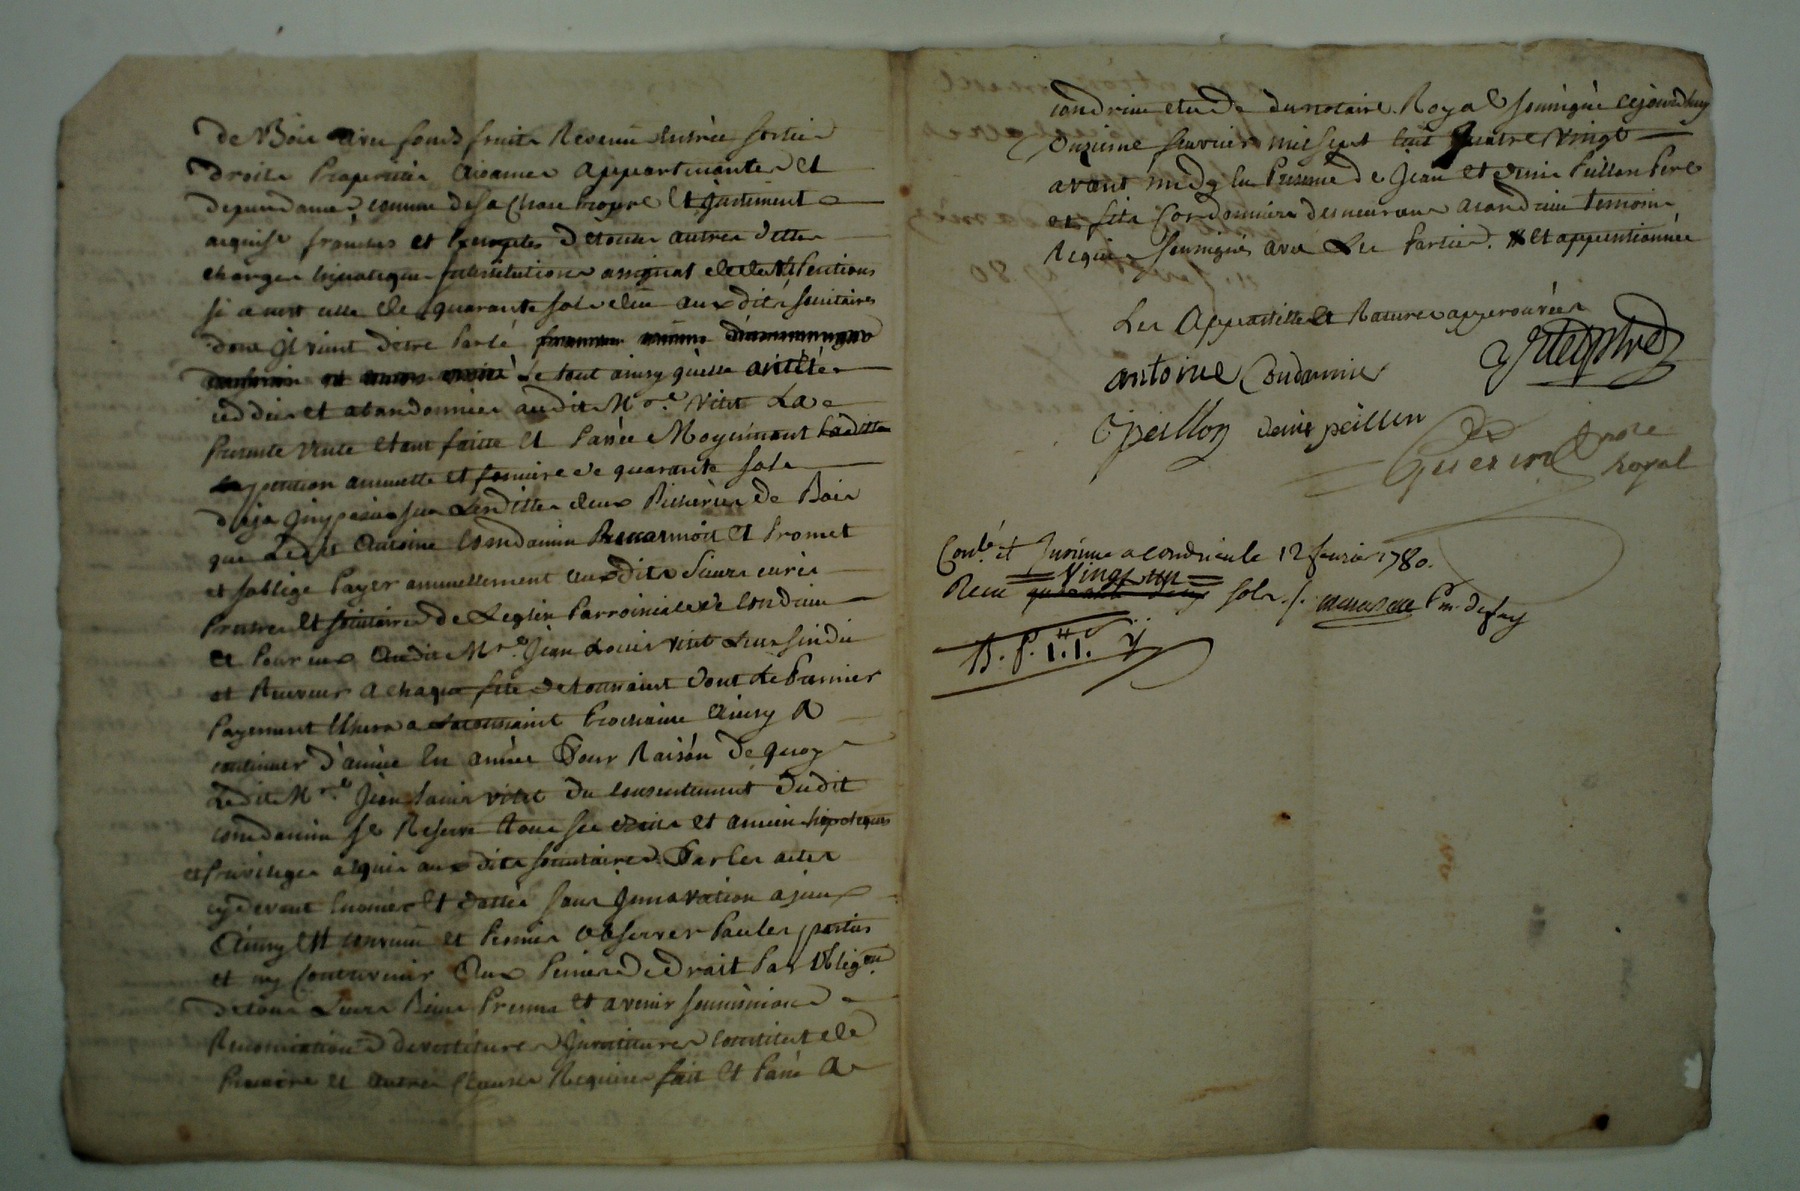 de Bois avec fonds fruits Revenu Entrée sortie
droits Proprietés aisances appartenantes et
dependances comme de sa Chose propre Et justement
acquise franches et Exemptes de toutes autres dettes
charges hipoteques substitutions assignat et de Pentions
si ce n'est celle de quarante sols due auxdits societaires
dont jl vient d'etre Parlé
Le tout ainsy quelle a etté
ceddée et abandonnée audit Mre Vitet La
Presente vente etant faitte et Passée Moyennant Laditte
pention annuelle et fonciere de quarante sols
deja jmposée sur Lesdittes deux Bicherées de Bois
que Ledit Antoine Condamin Reconnoit et Promet
et s'oblige Payer annuellement auxdits sieurs curés
Pretres et societaires de L'eglise Parroissiale de Condrieu
et Pour eux audit Mre Jean Louis vitet Leur sindic
et Receveur a chaque fete de toussaint dont Le Premier
Payement Echera a Latoussaint Prochaine Ainsy A
continuer d'année En année Pour Raison de quoy
Ledit Mre Jean Louis vitet du consentement dudit
condamin se Reserve Tous ses droits et anciens hipoteques
et Privileges acquis auxdits societaires Par les actes
cydevant Enoncés Et dattés sans jnnovation a jceux
Ainsy Est convenu et Promis observer Par les parties
et ny contrevenir Aux Peines de droit Par oblig.on
de tous Leurs Biens Presens et avenir soumissions
Renonciations devettitures jnvetitures constitut de
Precaire et autres Clauses Requises fait Et Passé A
condrieu etude du notaire Royal soussigné cejourdhuy
onzieme fevrier mil sept Cent quatre vingt
avant midy En Presence de Jean et denis Peillon Pere
et fils Cordonniers demeurant a condrieu temoins
Requis soussignés avec Les Parties. Et appentionnée
Les Appostille et Ratures approuvées
antoine Condamin
Vitet ptre
J peillon denis peillon
Guerin Nore
Royal
Conlé et Jnsinué a condrieu le 12 fevrier 1780.
Reçu vingt un sols